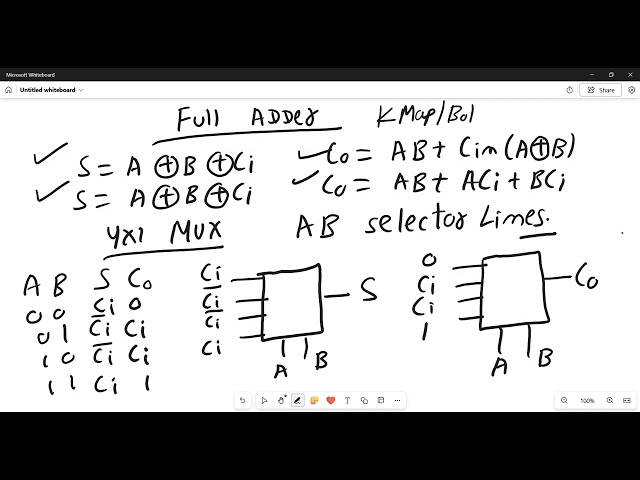 Microsoft Whiteboard
Untitled whiteboard
Share
Full Adder KMap/Bol
S = A ⊕ B ⊕ Ci
Co = AB + Cin(A⊕B)
S = A ⊕ B ⊕ Ci
Co = AB + ACi + BCi
4x1 MUX
AB selector Lines.
A B S Co
0 0 Ci 0
0 1 C̅i̅ Ci
1 0 C̅i̅ Ci
1 1 Ci 1
Ci
C̅i̅
C̅i̅
Ci
S
A B
0
Ci
Ci
1
Co
A B
100%